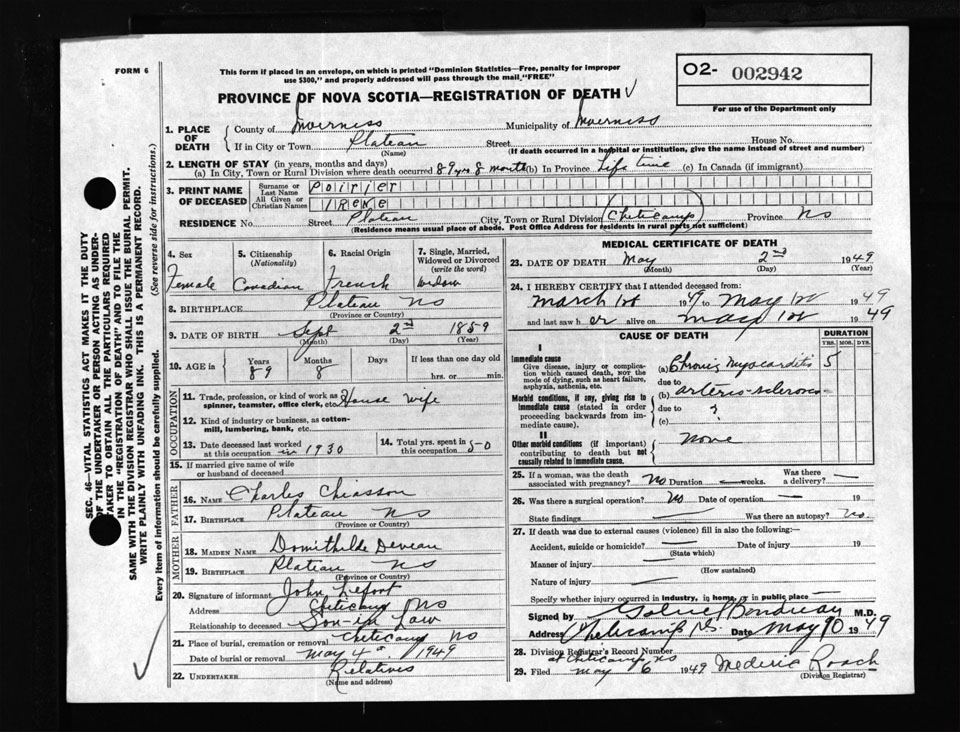 FORM 6
This form if placed in an envelope, on which is printed "Dominion Statistics—Free, penalty for improper
use $300," and properly addressed will pass through the mail "FREE"
O2- 002942
For use of the Department only
PROVINCE OF NOVA SCOTIA—REGISTRATION OF DEATH
1. PLACE OF DEATH
County of Inverness Municipality of Inverness
If in City or Town Plateau Street House No.
(Name) (If death occurred in a hospital or institution, give the name instead of street and number)
2. LENGTH OF STAY (in years, months and days)
(a) In City, Town or Rural Division where death occurred 89 yrs. 8 months (b) In Province Life time (c) In Canada (if immigrant)
3. PRINT NAME OF DECEASED
Surname or Last Name Poirier
All Given or Christian Names IRENE
RESIDENCE No. Street Plateau City, Town or Rural Division (Cheticamp) Province NS
(Residence means usual place of abode. Post Office Address for residents in rural parts not sufficient)
4. Sex
Female
5. Citizenship
(Nationality)
Canadian
6. Racial Origin
French
7. Single, Married,
Widowed or Divorced
(write the word)
Widow
8. BIRTHPLACE Plateau NS
(Province or Country)
9. DATE OF BIRTH Sept 2nd 1859
(Month) (Day) (Year)
10. AGE in Years Months Days If less than one day old
89 8 hrs. or min.
OCCUPATION
11. Trade, profession, or kind of work as
spinner, teamster, office clerk, etc. House Wife
12. Kind of industry or business, as cotton-
mill, lumbering, bank, etc.
13. Date deceased last worked
at this occupation in 1930
14. Total yrs. spent in
this occupation 50
15. If married give name of wife
or husband of deceased
FATHER
16. NAME Charles Chiasson
17. BIRTHPLACE Plateau NS
(Province or Country)
MOTHER
18. MAIDEN NAME Domithilde Deveau
19. BIRTHPLACE Plateau NS
(Province or Country)
20. Signature of informant John Lefort
Address Cheticamp NS
Relationship to deceased Son-in Law
21. Place of burial, cremation or removal Cheticamp NS
Date of burial or removal May 4th 1949
22. UNDERTAKER Relatives
(Name and address)
MEDICAL CERTIFICATE OF DEATH
23. DATE OF DEATH May 2nd 1949
(Month) (Day) (Year)
24. I HEREBY CERTIFY that I attended deceased from:
March 1st 1949 to May 1st 1949
and last saw her alive on May 1st 1949
CAUSE OF DEATH
DURATION
YRS. MOS. DYS.
I
Immediate cause
Give disease, injury or complication which caused death, not the
mode of dying, such as heart failure,
asphyxia, asthenia, etc.
(a) Chronic Myocarditis 5
due to
(b) arterio-sclerosis
Morbid conditions, if any, giving rise to
immediate cause (stated in order
proceeding backwards from immediate cause).
due to ?
(c)
II
Other morbid conditions (if important)
contributing to death but not
causally related to immediate cause.
None
25. If a woman, was the death
associated with pregnancy? No Duration — weeks. Was there a delivery? —
26. Was there a surgical operation? No Date of operation — 19
State findings — Was there an autopsy? No.
27. If death was due to external causes (violence) fill in also the following:—
Accident, suicide or homicide? — Date of injury 19
(State which)
Manner of injury —
(How sustained)
Nature of injury —
Specify whether injury occurred in industry, in home, or in public place —
Signed by M.D.
Address Cheticamp NS. Date May 1949
28. Division Registrar's Record Number
at Cheticamp NS
29. Filed May 6 1949 Mederic Roach
(Division Registrar)
SEC. 46—VITAL STATISTICS ACT MAKES IT THE DUTY
OF THE UNDERTAKER OR PERSON ACTING AS UNDER-
TAKER TO OBTAIN ALL THE PARTICULARS REQUIRED
IN THE "REGISTRATION OF DEATH" AND TO FILE THE
SAME WITH THE DIVISION REGISTRAR WHO SHALL ISSUE THE BURIAL PERMIT.
WRITE PLAINLY WITH UNFADING INK. THIS IS A PERMANENT RECORD.
Every item of information should be carefully supplied. (See reverse side for instructions.)